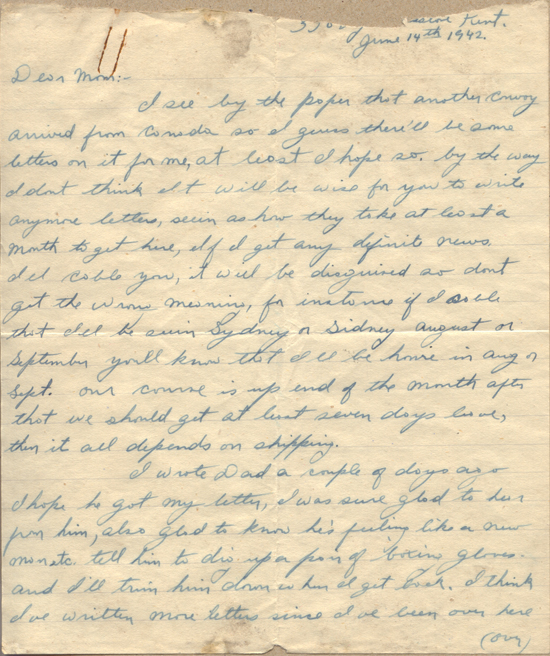 Kent.
June 14th 1942.
Dear Mom:-
I see by the paper that another convoy
arrived from Canada so I guess there'll be some
letters on it for me, at least I hope so. by the way
I dont think it will be wise for you to write
anymore letters, seein as how they take at least a
month to get here, If I get any definite news
I'll cable you, it will be disguised so dont
get the wrong meaning, for instance if I cable
that I'll be seein Sydney or Sidney august or
September you'll know that I'll be home in aug or
Sept. our course is up end of the month after
that we should get at least seven days leave,
then it all depends on shipping.
I wrote Dad a couple of days ago
I hope he got my letter, I was sure glad to hear
from him, also glad to know he's feeling like a new
man etc. tell him to dig up a pair of boxing gloves
and I'll trim him down when I get back. I think
I've written more letters since I've been over here
(over)